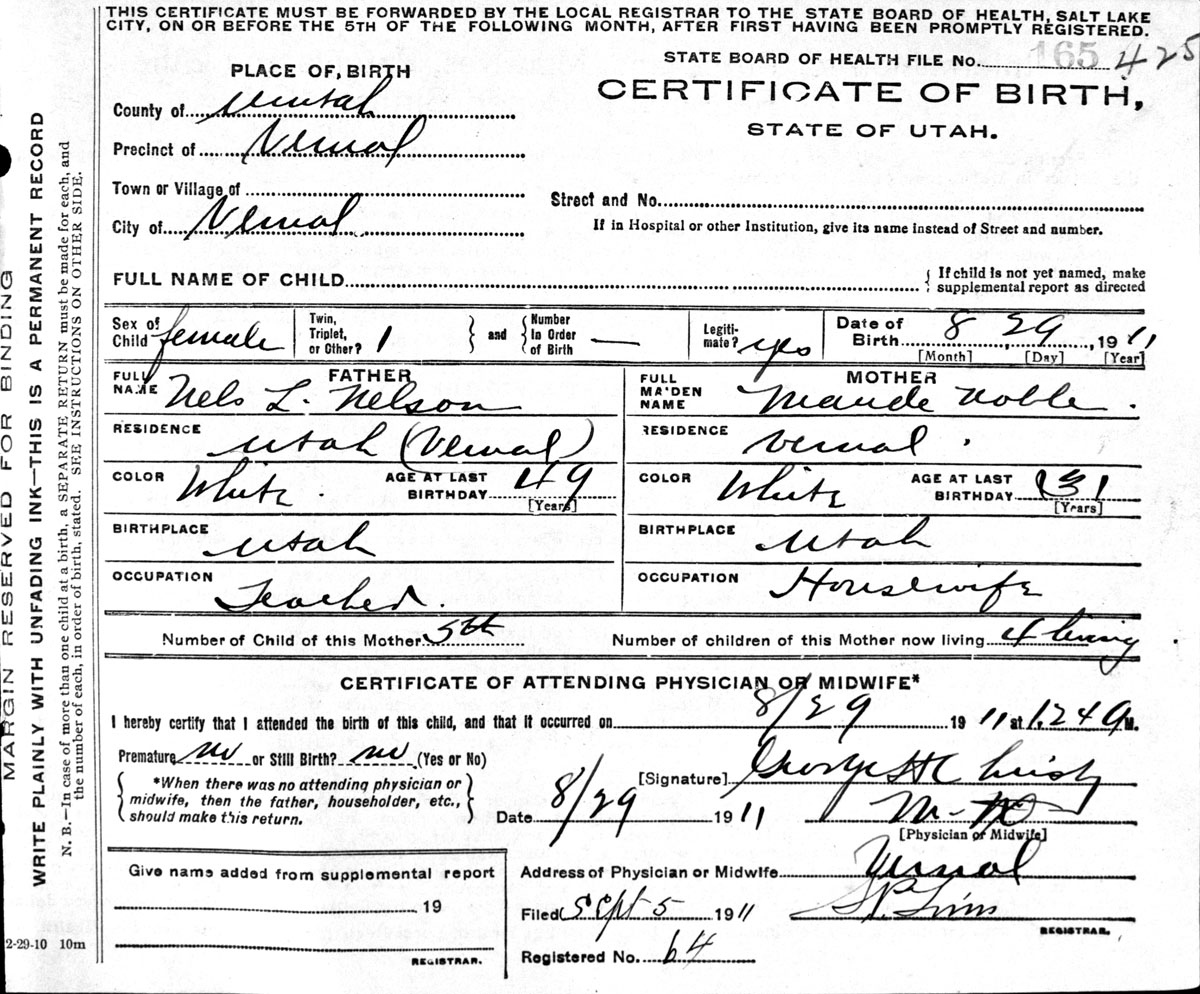 THIS CERTIFICATE MUST BE FORWARDED BY THE LOCAL REGISTRAR TO THE STATE BOARD OF HEALTH, SALT LAKE
CITY, ON OR BEFORE THE 5TH OF THE FOLLOWING MONTH, AFTER FIRST HAVING BEEN PROMPTLY REGISTERED.
STATE BOARD OF HEALTH FILE No. 165 425
CERTIFICATE OF BIRTH,
STATE OF UTAH.
PLACE OF BIRTH
County of
Precinct of Vernal
Town or Village of
City of Vernal
Street and No.
If in Hospital or other Institution, give its name instead of Street and number.
FULL NAME OF CHILD
{ If child is not yet named, make
supplemental report as directed
Sex of Child female
Twin, Triplet, or Other? 1 } and { Number In Order of Birth —
Legiti-mate? yes
Date of Birth 8 29, 1911
[Month] [Day] [Year]
FATHER
FULL NAME Nels L. Nelson
RESIDENCE Utah (Vernal)
COLOR White. AGE AT LAST BIRTHDAY 49
[Years]
BIRTHPLACE Utah
OCCUPATION Teacher.
MOTHER
FULL MAIDEN NAME Maude Noble.
RESIDENCE Vernal.
COLOR White AGE AT LAST BIRTHDAY 31
[Years]
BIRTHPLACE Utah
OCCUPATION Housewife
Number of Child of this Mother 5th Number of children of this Mother now living 4 living
CERTIFICATE OF ATTENDING PHYSICIAN OR MIDWIFE*
I hereby certify that I attended the birth of this child, and that it occurred on 8/29 1911 at 1.24 a M.
Premature no or Still Birth? no (Yes or No)
{ *When there was no attending physician or
midwife, then the father, householder, etc.,
should make this return. }
[Signature] George H
Date 8/29 1911 M-D
[Physician or Midwife]
Give name added from supplemental report
19
REGISTRAR.
Address of Physician or Midwife Vernal
Filed Sept 5 1911
REGISTRAR.
Registered No. 64
2-29-10 10m
MARGIN RESERVED FOR BINDING
WRITE PLAINLY WITH UNFADING INK—THIS IS A PERMANENT RECORD
N. B.—In case of more than one child at a birth, a SEPARATE RETURN must be made for each, and
the number of each, in order of birth, stated. SEE INSTRUCTIONS ON OTHER SIDE.